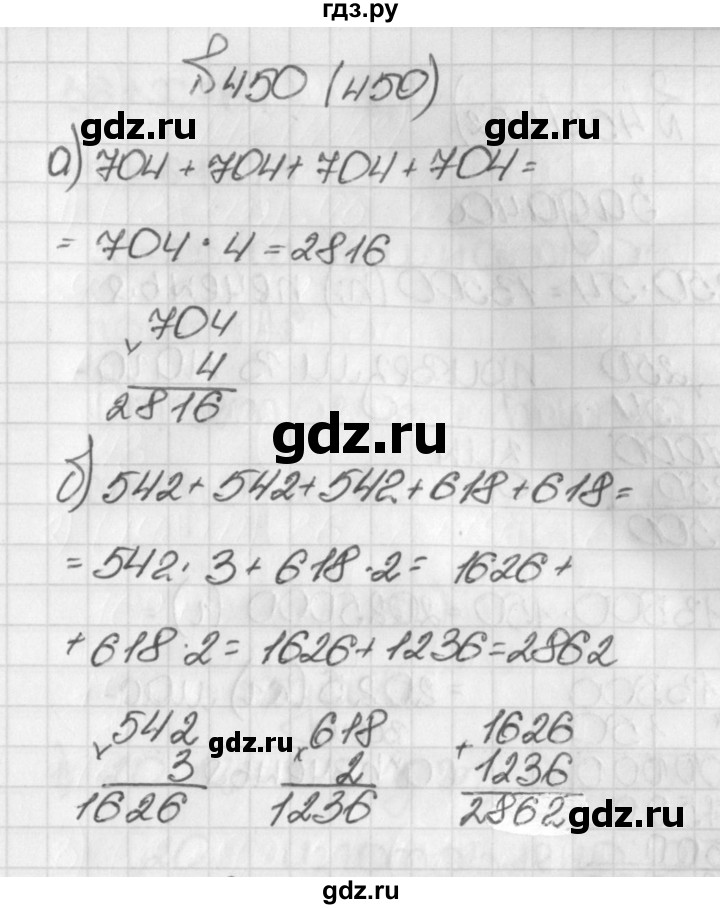 гдз.ру
№450 (450)
gdz.ru gdz.ru
а) 704 + 704 + 704 + 704 =
= 704 · 4 = 2816
× 704
4
2816
gdz.ru
б) 542 + 542 + 542 + 618 + 618 =
= 542 · 3 + 618 · 2 = 1626 +
+ 618 · 2 = 1626 + 1236 = 2862
× 542 gdz.ru × 618 + 1626
3 2 1236
1626 1236 2862
gdz.ru
gdz.ru